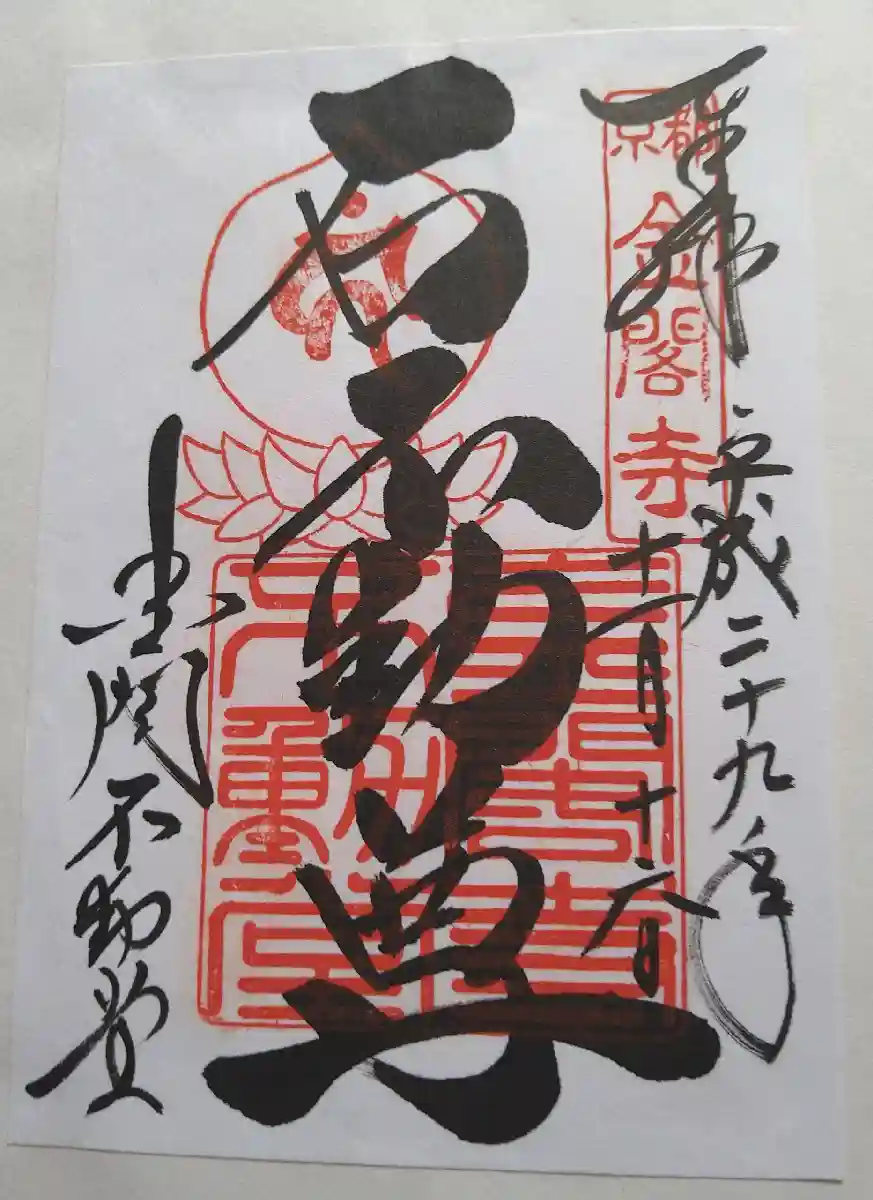 奉拝
京都
金閣寺
平成二十九年
十一月十六日
石不動尊
金閣不動堂